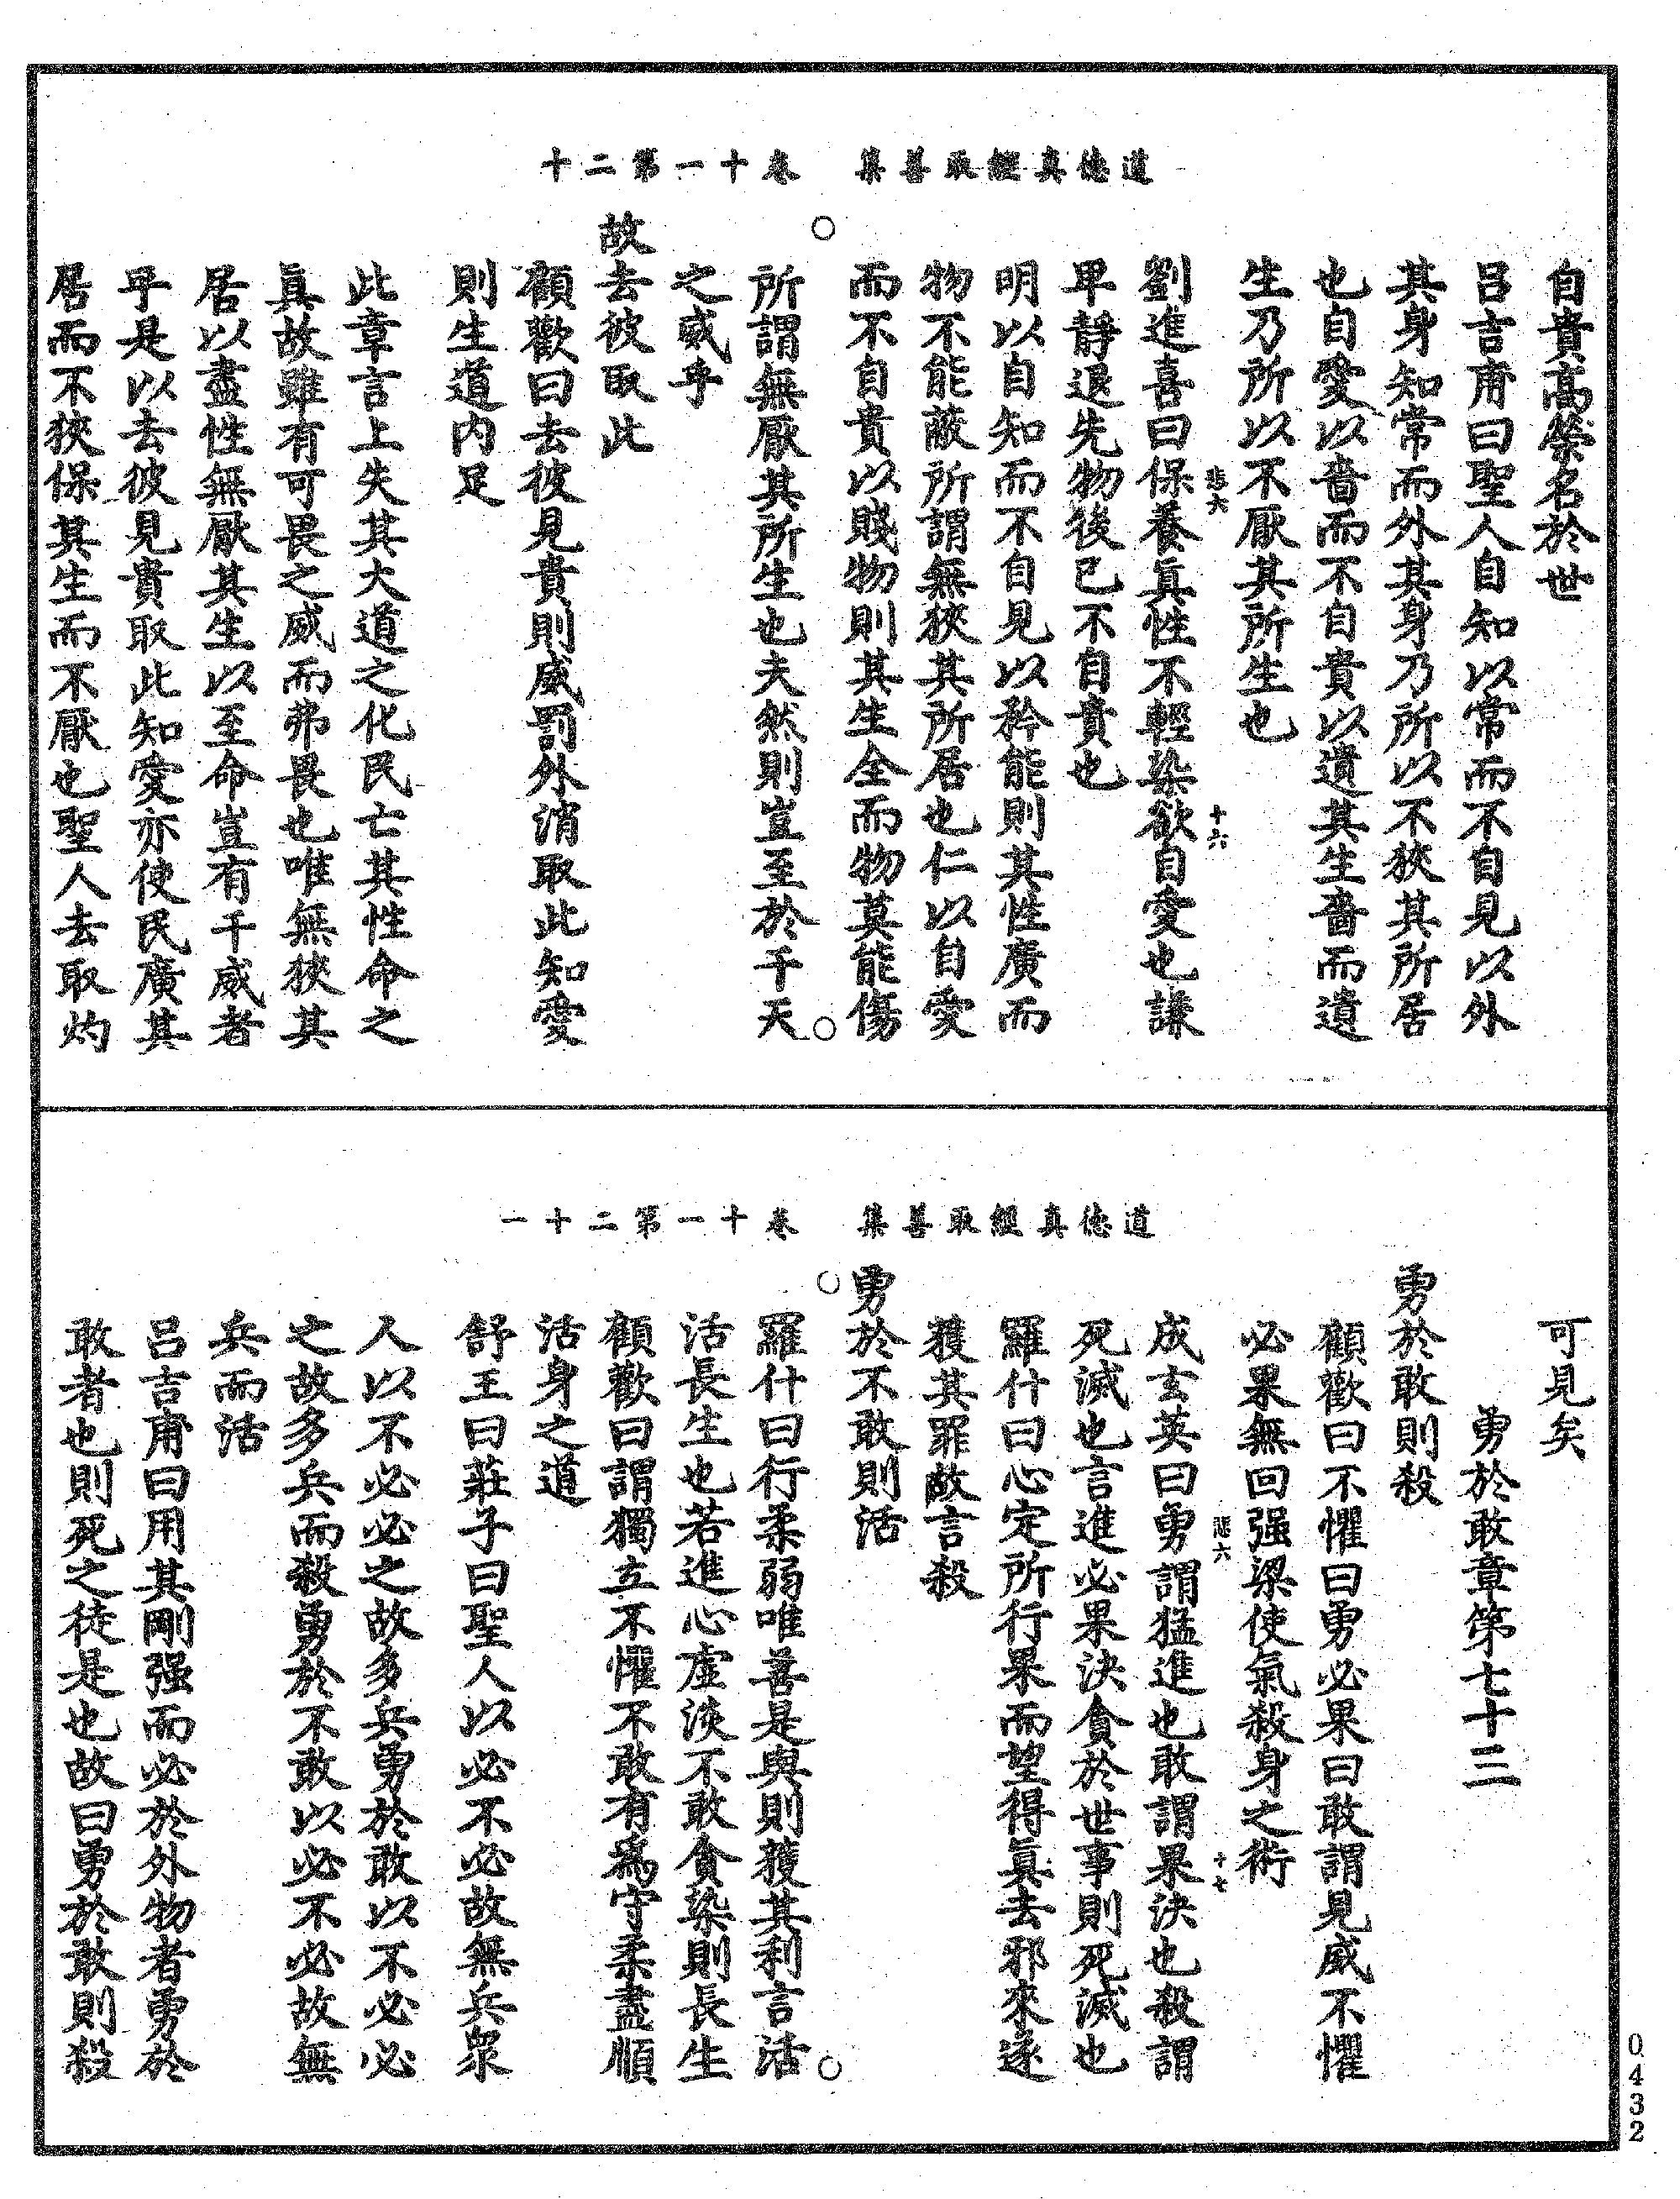 道德真經取善集　卷十一第二十
自貴高榮名於世
呂吉甫曰聖人自知以常而不自見以外
其身知常而外其身乃所以不狹其所居
也自愛以嗇而不自貴以遺其生嗇而遺
生乃所以不厭其所生也
悲六
十六
劉進喜曰保養眞性不輕染欲自愛也謙
卑靜退先物後已不自貴也
明以自知而不自見以矜能則其性廣而
物不能蔽所謂無狹其所居也仁以自愛
而不自貴以賤物則其生全而物莫能傷
所謂無厭其所生也夫然則豈至於干天
之威乎
故去彼取此
顧歡曰去彼見貴則威罰外消取此知愛
則生道内足
此章言上失其大道之化民亡其性命之
眞故雖有可畏之威而弗畏也唯無狹其
居以盡性無厭其生以至命豈有干威者
乎是以去彼見貴取此知愛亦使民廣其
居而不狹保其生而不厭也聖人去取灼
道德真經取善集　卷十一第二十一
可見矣
勇於敢章第七十三
勇於敢則殺
顧歡曰不懼曰勇必果曰敢謂見威不懼
必果無回强梁使氣殺身之術
悲六
十七
成玄英曰勇謂猛進也敢謂果決也殺謂
死滅也言進必果決貪於世事則死滅也
羅什曰心定所行果而望得眞去邪來遂
獲其罪故言殺
勇於不敢則活
羅什曰行柔弱唯善是與則獲其利言活
活長生也若進心虛淡不敢貪染則長生
顧歡曰謂獨立不懼不敢有爲守柔盡順
活身之道
舒王曰莊子曰聖人以必不必故無兵衆
人以不必必之故多兵勇於敢以不必必
之故多兵而殺勇於不敢以必不必故無
兵而活
呂吉甫曰用其剛强而必於外物者勇於
敢者也則死之徒是也故曰勇於敢則殺
0432